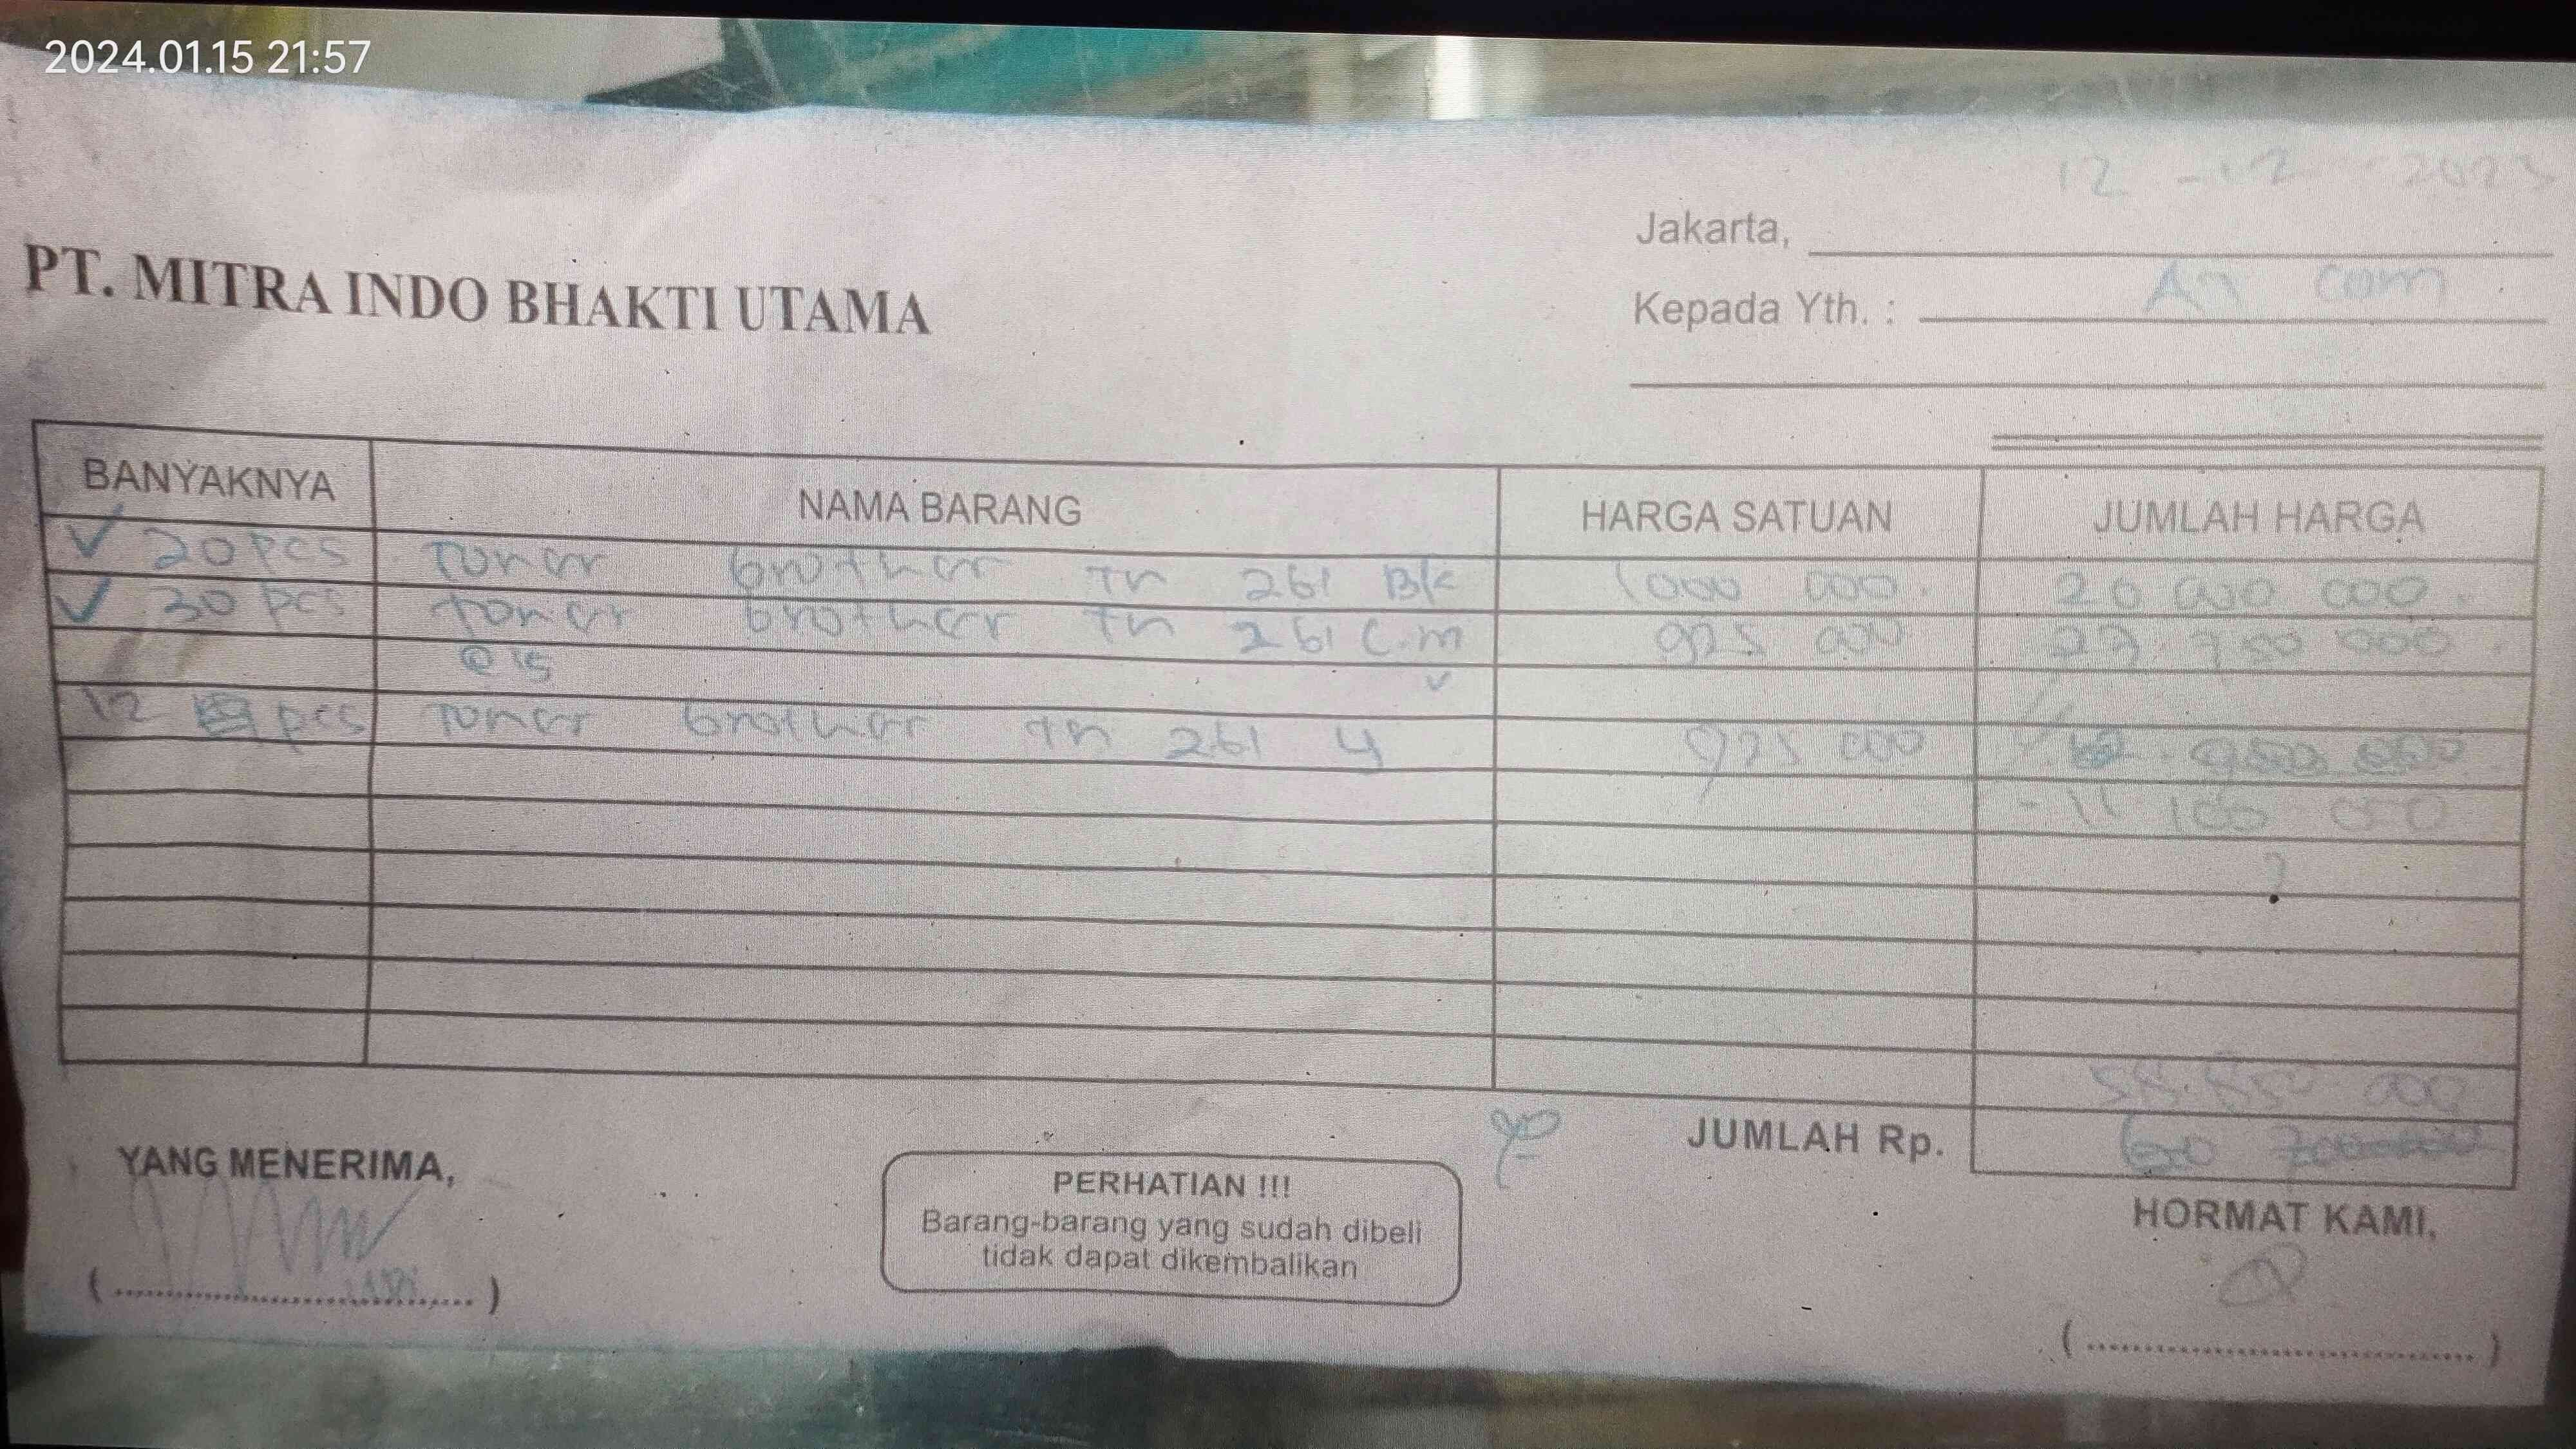 2024.01.15 21:57
12 - 12 - 2023
Jakarta,
PT. MITRA INDO BHAKTI UTAMA
Kepada Yth. : An com
BANYAKNYA NAMA BARANG HARGA SATUAN JUMLAH HARGA
✓ 20 pcs toner brother tn 261 Bk 1000 000. 20 000 000.
✓ 30 pcs toner brother tn 261 C.m 925 000 27.750 000.
@ 15 ✓
12 pcs toner brother tn 261 y 925 000
- 11 100 000
58.850 000
JUMLAH Rp. 60 700.000
YANG MENERIMA,
PERHATIAN !!!
Barang-barang yang sudah dibeli
tidak dapat dikembalikan
HORMAT KAMI,